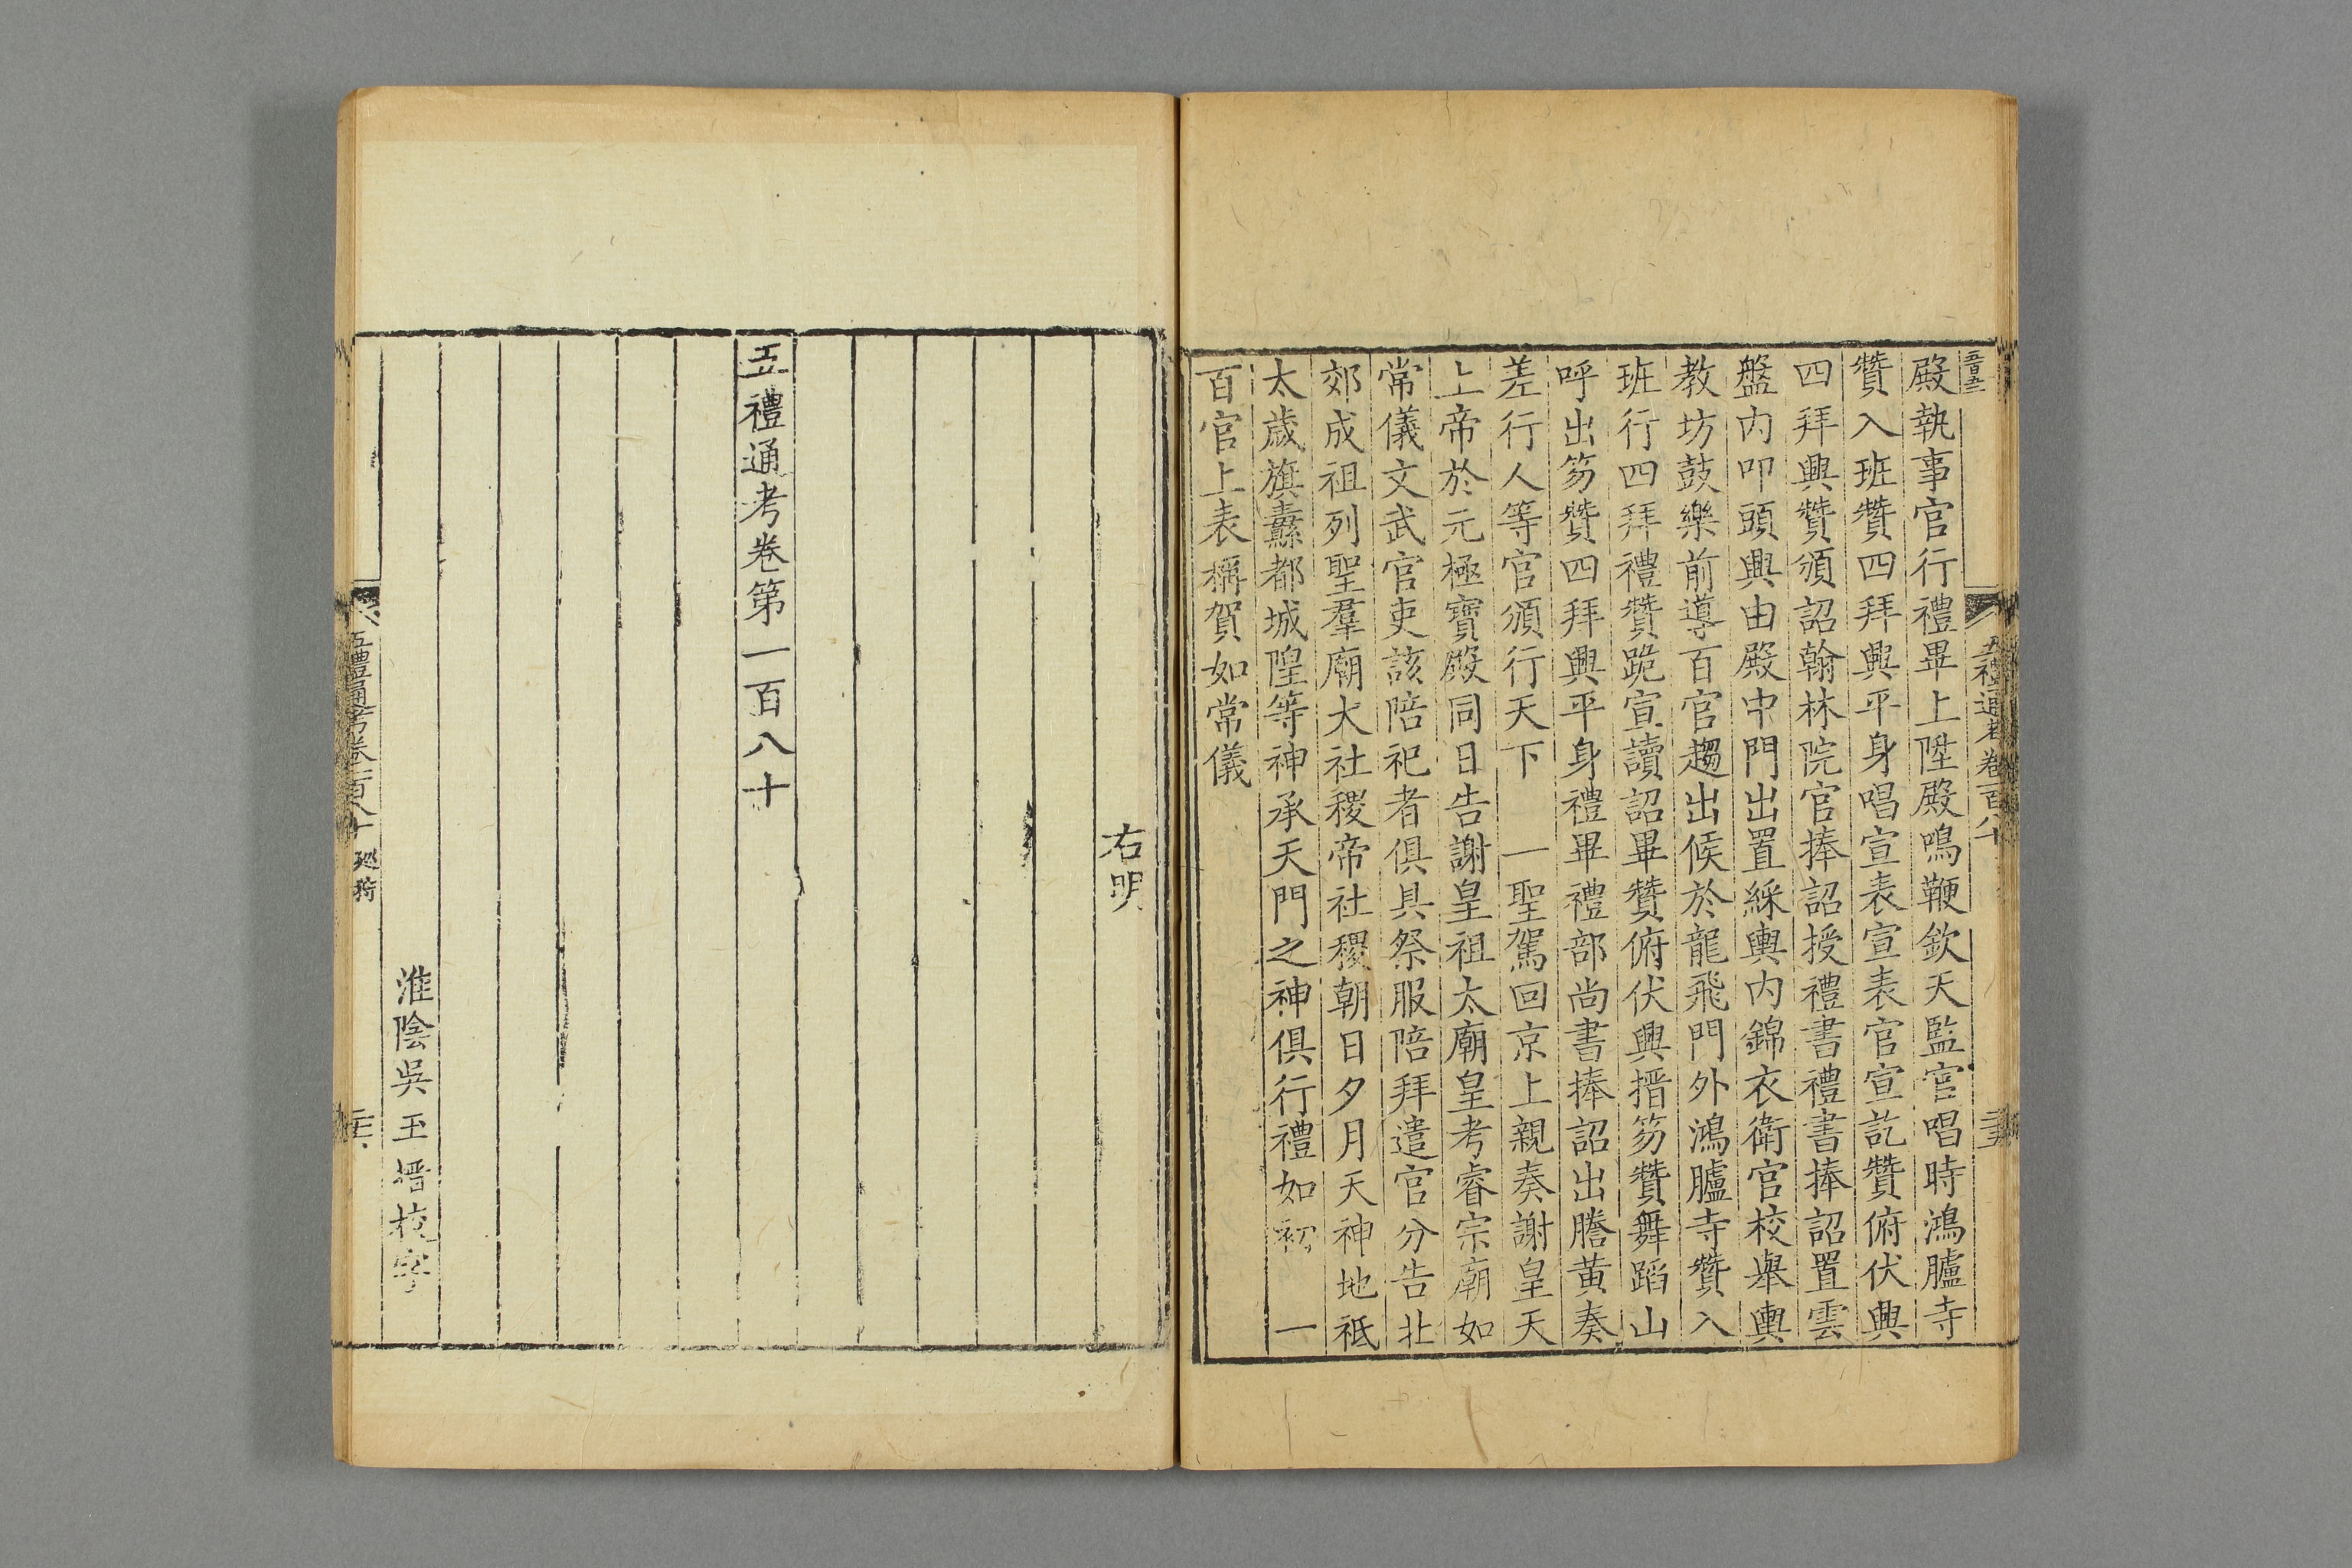 五禮通考卷一百八十
殿執事官行禮畢上陞殿鳴鞭欽天監官唱時鴻臚寺
贊入班贊四拜興平身唱宣表宣表官宣訖贊俯伏興
四拜興贊頒詔翰林院官捧詔授禮書禮書捧詔置雲
盤内叩頭興由殿中門出置綵輿内錦衣衛官校舉輿
教坊鼓樂前導百官趨出候於龍飛門外鴻臚寺贊入
班行四拜禮贊跪宣讀詔畢贊俯伏興搢笏贊舞蹈山
呼出笏贊四拜興平身禮畢禮部尚書捧詔出謄黃奏
差行人等官頒行天下 一聖駕回京上親奏謝皇天
上帝於元極寶殿同日告謝皇祖太廟皇考睿宗廟如
常儀文武官吏該陪祀者俱具祭服陪拜遣官分告北
郊成祖列聖羣廟大社稷帝社稷朝日夕月天神地祗
太歲旗纛都城隍等神承天門之神俱行禮如初 一
百官上表稱賀如常儀
右明
五禮通考卷第一百八十
淮陰吳玉搢校字
五禮通考卷一百八十 巡狩